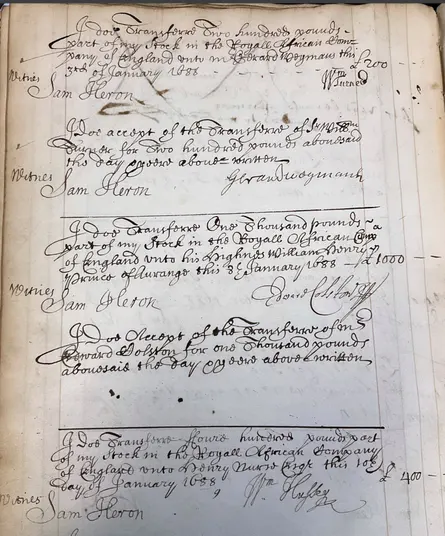 I doe Transferre Two hundred pounds
part of my Stock in the Royall African Com-
pany of England unto mr Gerard Weymans this
3th of January 1688 — £ 200
Wm
Turner
Witnes
Sam Heron
I Doe accept of the Transferre of Sr Willm
Turner for Two hundred pounds abovesaid
the day & yeere above written
Witnes
Sam Heron
Gerard weymans
I doe Transferre One Thousand pounds
part of my Stock in the Royall African Comp
of England unto his Highnes William Henry
Prince of Aurange this January 1688 — £ 1000
Witnes
Sam Heron
Edward Colston
I Doe Accept of the Transferre of mr
Edward Colston for one Thousand pounds
abovesaid the day & yeere above written
I Doe Transferre foure hundred pounds part
of my Stock in the Royall African Company
of England unto Henry Nurse Esqr this 10th
day of January 1688 £ 400
Witnes
Sam Heron
Wm Hussey